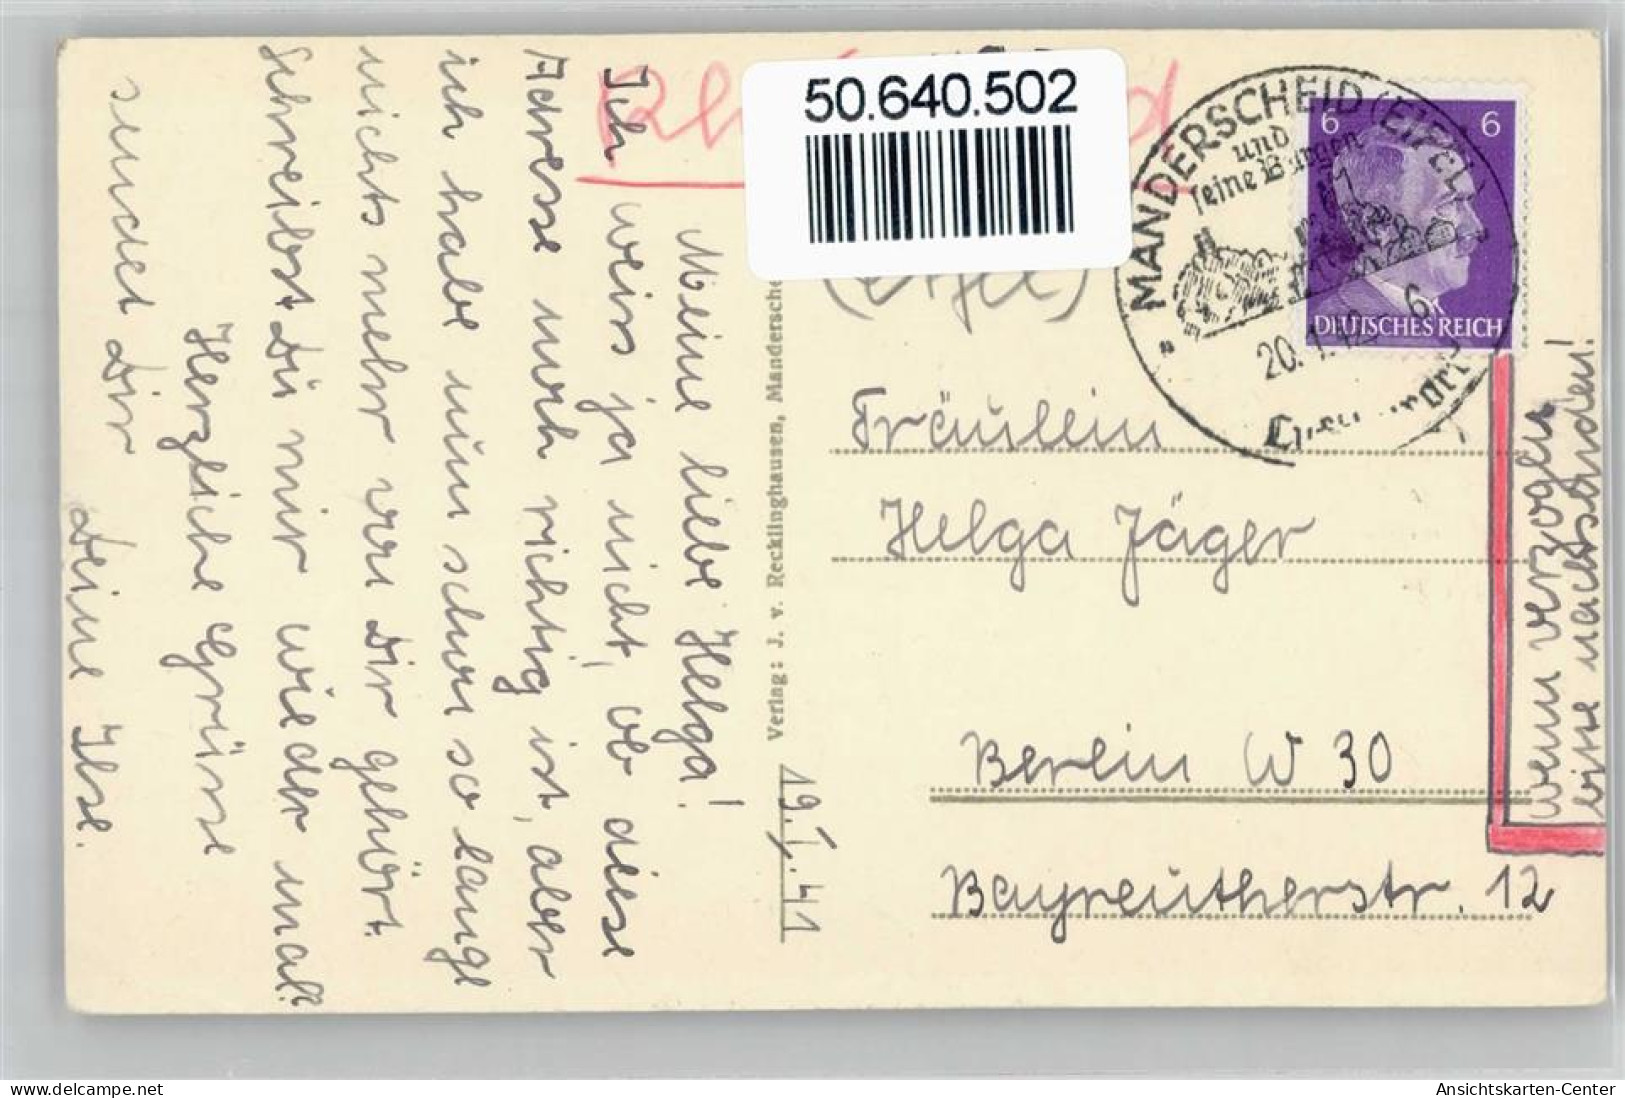 50.640.502
MANDERSCHEID (EIFEL)
und
seine Burgen
20.
6
6 6
DEUTSCHES REICH
(Eifel)
19.I.41
Meine liebe Helga!
Ich weiss ja nicht, ob diese
Adresse noch richtig ist, aber
ich habe nun schon so lange
nichts mehr von Dir gehört.
Schreibst Du mir wieder mal?
Herzliche Grüsse
sendet Dir
Deine Ilse.
Verlag: J. v. Recklinghausen, Mandersche
Fräulein
Helga Jäger
Berlin W 30
Bayreutherstr. 12
wenn verzogen
bitte nachsenden!
oldthing.de
Ansichtskarten-Center